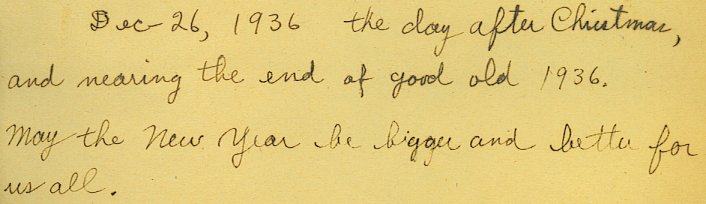 Dec 26, 1936 the day after Christmas,
and nearing the end of good old 1936.
May the New Year be bigger and better for
us all.